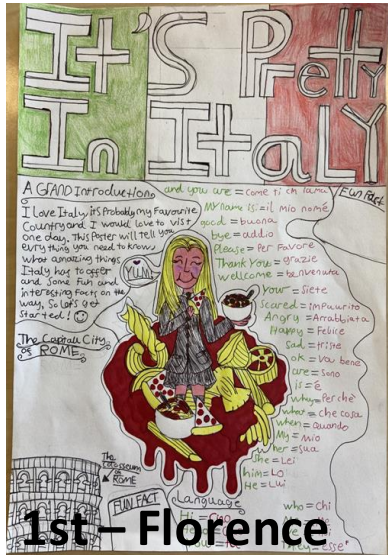 It's Pretty
In Italy
A GRAND Introduction
I love Italy, it's Probably my Favourite
Country and I would love to visit
one day. This Poster will tell you
evrything you need to know
what amazing things
Italy has to offer
and Some Fun and
interesting Facts on the
way, So lets get
Started!
The Capitall City
OF ROME
YUM!
Fun Fact
and you are = come ti chiami
MY Name is = il mio nome
good = buona
bye = addio
Please = Per Favore
Thank You = grazie
wellcome = benvenuta
your = Siete
scared = imPauurito
Angry = Arrabbiata
Happy = Felice
sad = triste
ok = va bene
are = sono
is = è
why = Perchè
what = che cosa
when = quando
My = mio
her = Sua
She = Lei
him = Lo
He = Lui
The Colosseum
in ROME
FUN FACT
Language
Hi = Ciao
who = Chi
1st – Florence